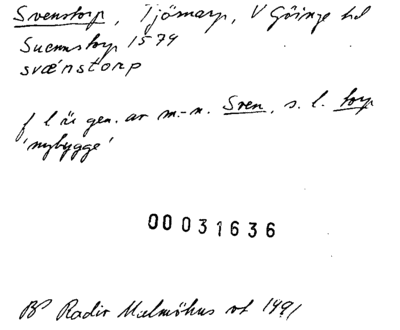 Svenstorp, Tjörnarp, V Göinge hd
Suenstorp 1579
svænstorp
f l är gen. av m.-n. Sven, s. l. torp
'nybygge'
00031636
BP Radio Malmöhus vt 1991